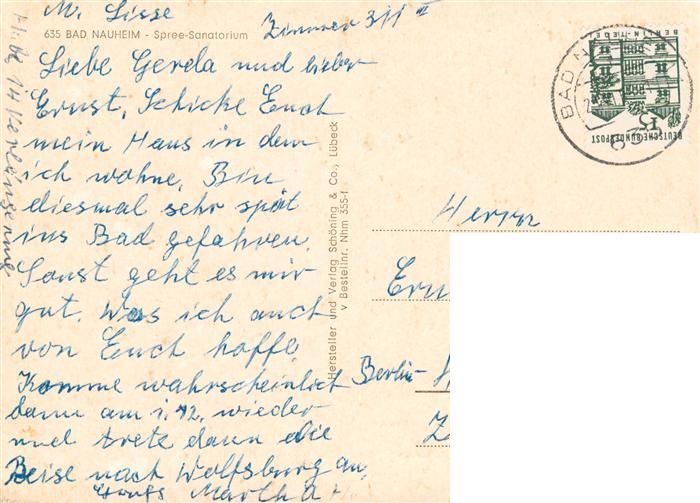 M. Lisse
Zimmer 311 II
635 BAD NAUHEIM - Spree-Sanatorium
Liebe Gerda und lieber
Ernst, Schicke Euch
mein Haus in dem
ich wohne. Bin
diesmal sehr spät
ins Bad gefahren.
Sonst geht es mir
gut. Was ich auch
von Euch hoffe
Komme wahrscheinlich
dann am 1.12. wieder
und trete dann die
Reise nach Wolfsburg an,
Gruß Martha
Habe 14 Verlängerung
Hersteller und Verlag Schöning & Co., Lübeck
v Bestellnr. Nhm 355-f
BERLIN-TEGEL
15
DEUTSCHE BUNDESPOST
BAD N
Herrn
Ern
Berlin-